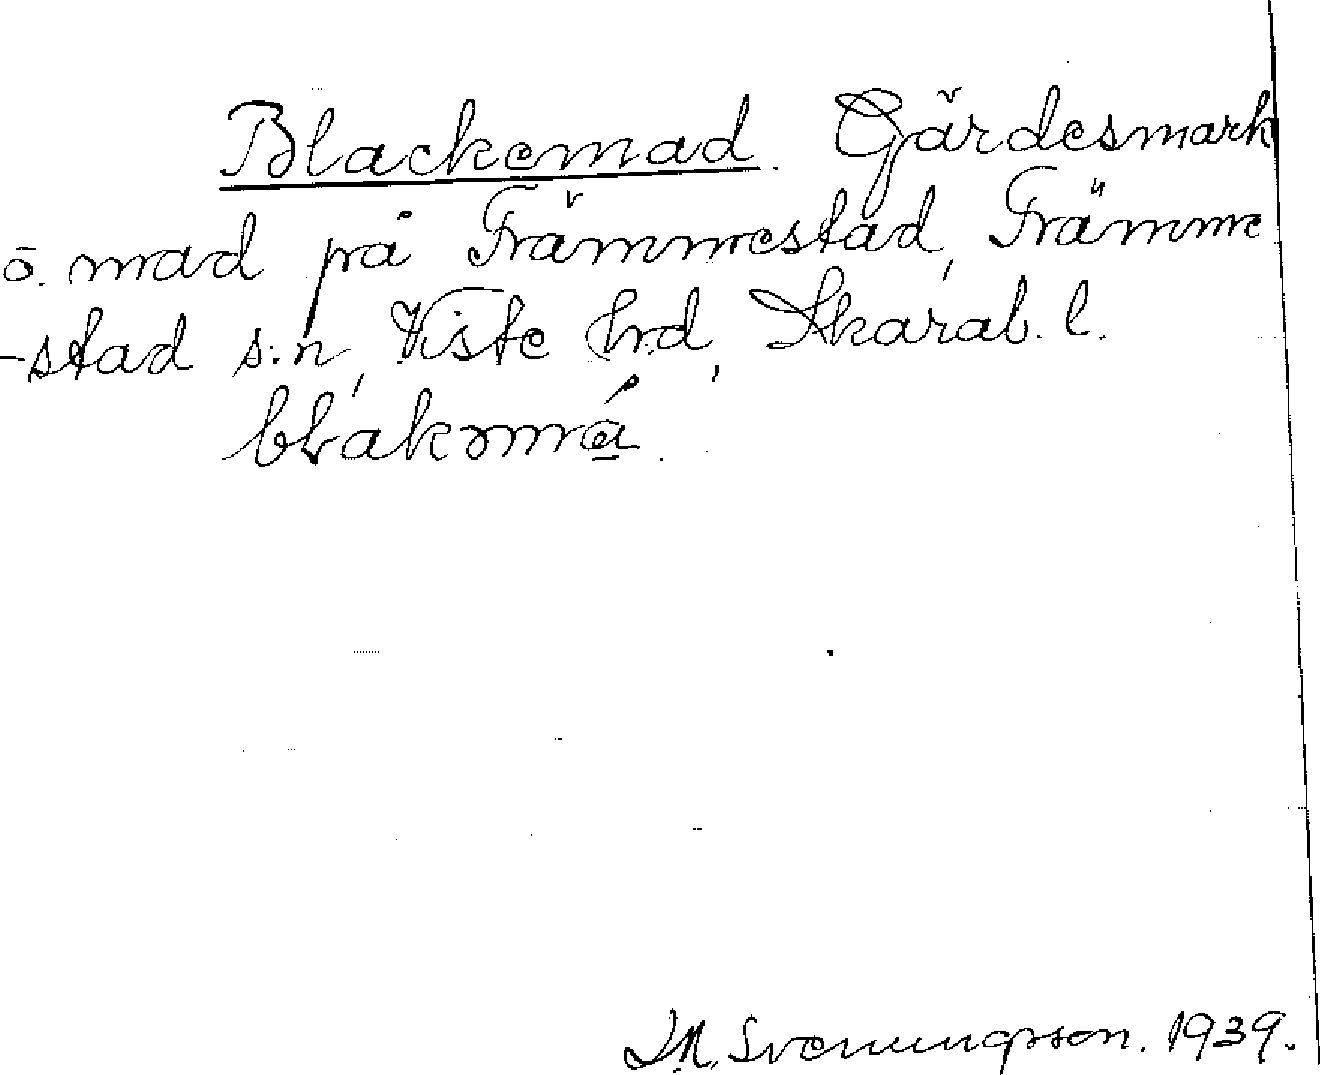 Blackemad. Gärdesmark
ö. mad på Främmestad, Främme
-stad s:n, Viste hrd, Skarab. l.
Svenungsson. 1939.